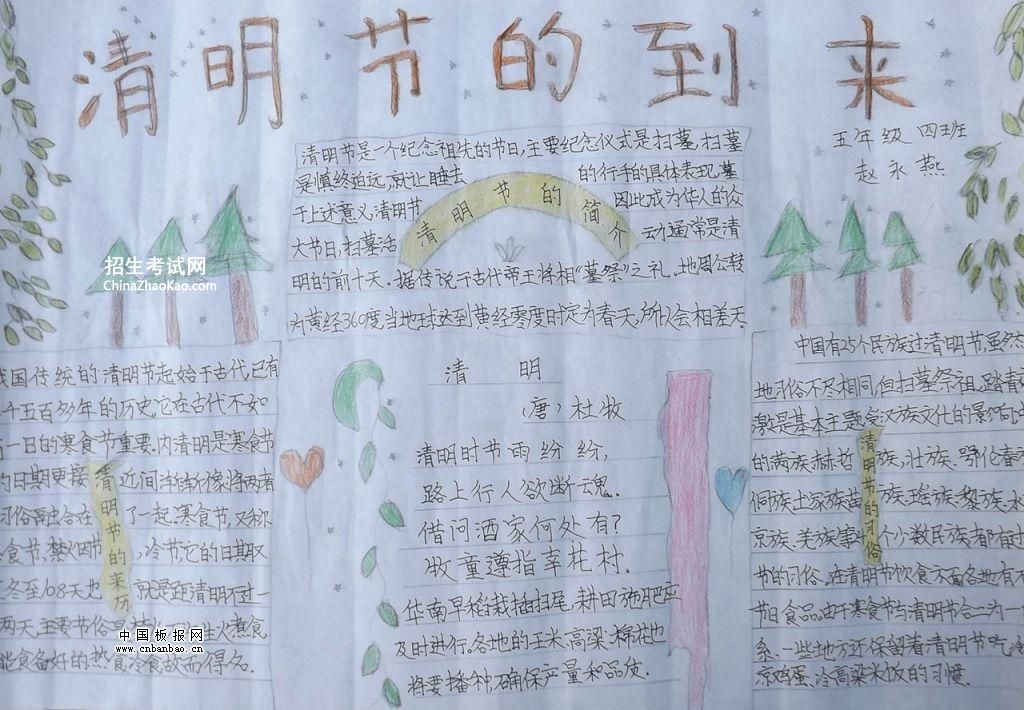 清明节的到来
五年级 四班
赵永燕
清明节是一个纪念祖先的节日,主要纪念仪式是扫墓,扫墓
是慎终追远,
的具体表现,墓
于上述意义,清明节
因此成为华人的众
大节日,扫墓活
动通常是清
明的前十天.据传说于古代帝王将相“墓祭”之礼.地周公转
为黄经360度,当地球达到黄经零度时定为春天,所以会相差天.
清明节的简介
招生考试网
ChinaZhaoKao.com
我国传统的清明节起始于古代,已有
千五百多年的历史,它在古代不如
一日的寒食节重要,内清明是寒食节
的日期更接
近间
习俗
合在
了一起.寒食节,又称
食节,禁火节
,冷节它的日期又
冬至108天也
就是距清明不过一
两天,主要节俗
火煮食,
能食备好的热食冷食故而得名.
清明节的来历
中国板报网
www.cnbanbao.cn
清 明
(唐) 杜牧
清明时节雨纷纷,
路上行人欲断魂.
借问酒家何处有?
牧童遵指幸花村.
华南早稻栽插扫尾,耕田施肥应
及时进行.各地的玉米高粱、棉花也
将要播种,确保产量和品质.
中国有25个民族过清明节,虽然
地习俗不尽相同,但扫墓祭祖,踏青
是基本主题.受汉族文化的影响,中
的满族、赫哲
族,壮族、鄂伦春
侗族、土家族、苗
族、瑶族、黎族、水
京族、羌族等
个少数民族都有过
节的习俗.
清明节饮食
各地有不
节日食品,由于寒食节与清明节合二为一
系.一些地方还保留着清明节吃冷
凉鸡蛋、冷高粱米饭的习惯.
清明节的习俗